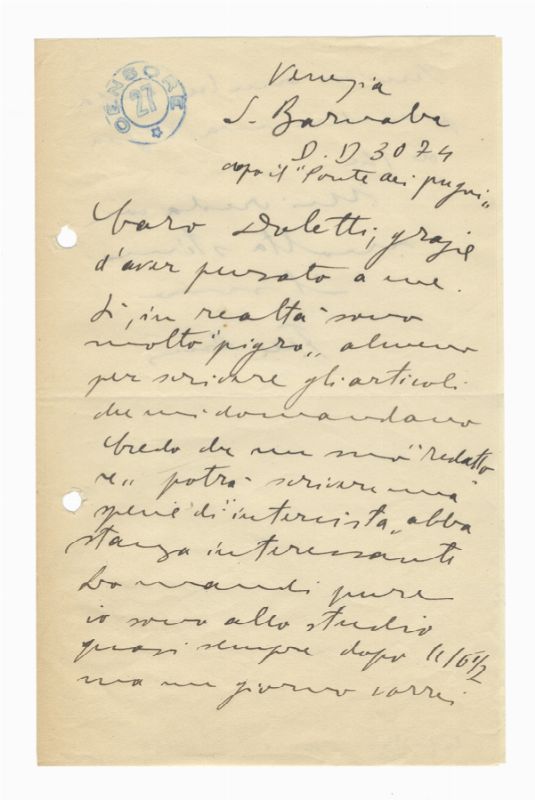 CENSORE
27
Venezia
S. Barnaba
D. D 3074
dopo il "Ponte dei pugni„
Caro Doletti, grazie
d'aver pensato a me.
Sì, in realtà sono
molto "pigro„ almeno
per scrivere gli articoli
che mi domandano
Credo che un suo "redatto
re„ potrà scrivere una
specie di "intervista„ abba
stanza interessante
Lo mandi pure
io sono allo studio
quasi sempre dopo le
ma un giorno vorrei